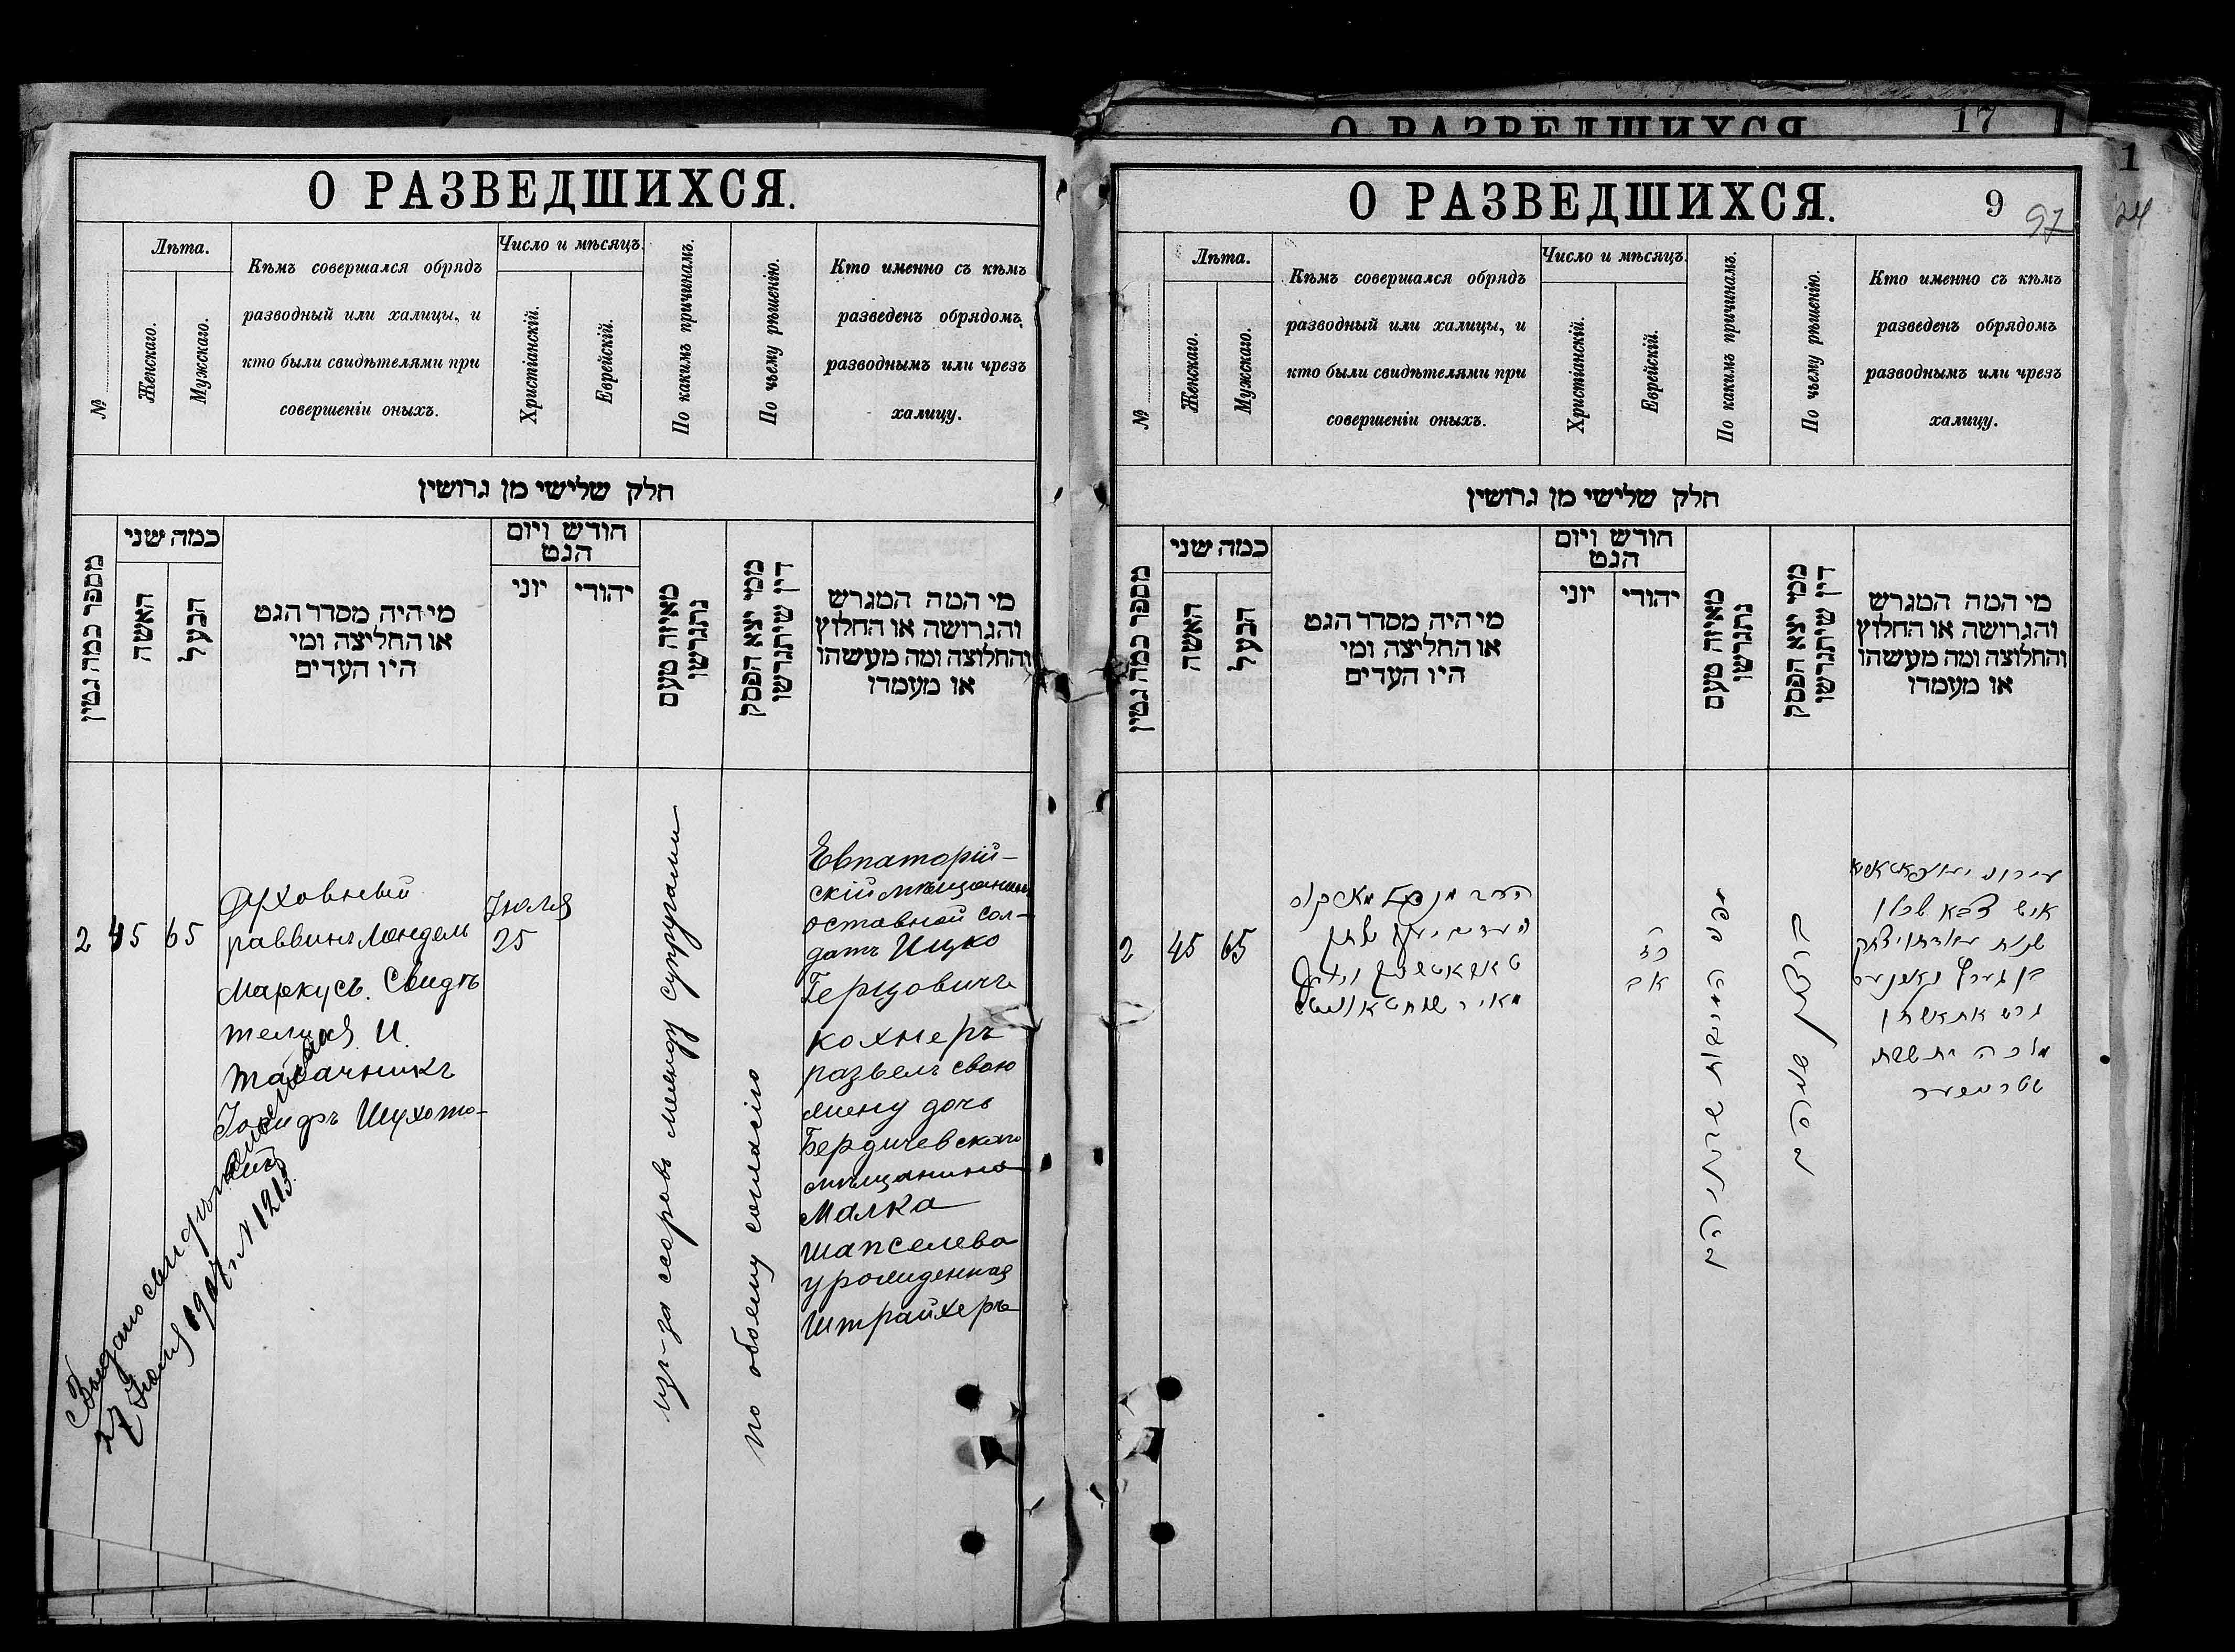 О РАЗВЕДШИХСЯ.
№
Лѣта.
Женскаго.
Мужскаго.
Кѣмъ совершался обрядъ
разводный или халицы, и
кто были свидѣтелями при
совершеніи оныхъ.
Число и мѣсяцъ.
Христіанскій.
Еврейскій.
По какимъ причинамъ.
По чьему рѣшенію.
Кто именно съ кѣмъ
разведенъ обрядомъ
разводнымъ или чрезъ
халицу.
חלק שלישי מן גרושין
מספר כמה גטין
כמה שני
האשה
הבעל
מי היה מסדר הגט
או החליצה ומי
היו העדים
חודש ויום
הגט
יוני
יהודי
מאיזה טעם
נתגרשו
ממי יצא הפסק
דין שיתגרשו
מי המה המגרש
והגרושה או החלוץ
והחלוצה ומה מעשהו
או מעמדו
2
45
65
Духовный
раввинъ Мендель
Маркусъ. Свидѣ
тели: И.
Табачникъ
Іосифъ Шухото-
Іюля
25
изъ-за ссоровъ между супругами
по обоему согласію
Евпаторій-
скій мѣщанинъ
оставной сол-
датъ Ицко
Герцовичъ
Кохнеръ
развелъ свою
жену дочь
Бердичевскаго
мѣщанина
Малка
Шапселева
урожденная
Штрайхеръ
27 Іюля 1907 г. № 1213.
17
О РАЗВЕДШИХСЯ.
9
97
24
1
№
Лѣта.
Женскаго.
Мужскаго.
Кѣмъ совершался обрядъ
разводный или халицы, и
кто были свидѣтелями при
совершеніи оныхъ.
Число и мѣсяцъ.
Христіанскій.
Еврейскій.
По какимъ причинамъ.
По чьему рѣшенію.
Кто именно съ кѣмъ
разведенъ обрядомъ
разводнымъ или чрезъ
халицу.
חלק שלישי מן גרושין
מספר כמה גטין
כמה שני
האשה
הבעל
מי היה מסדר הגט
או החליצה ומי
היו העדים
חודש ויום
הגט
יוני
יהודי
מאיזה טעם
נתגרשו
ממי יצא הפסק
דין שיתגרשו
מי המה המגרש
והגרושה או החלוץ
והחלוצה ומה מעשהו
או מעמדו
2
45
65
הרב מנדל מארקוס
אב
איש צבא
יצחק
בן
גרש את אשתו
מלכה